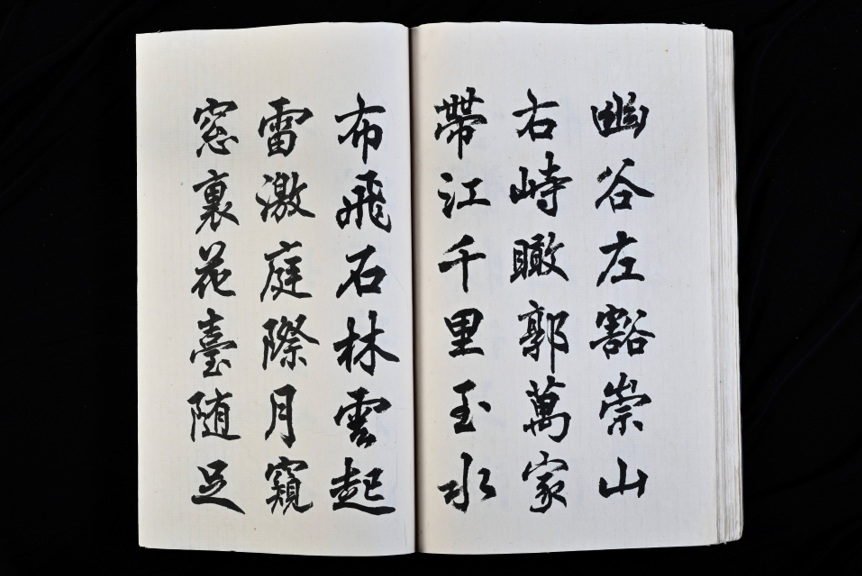 幽谷左豁崇山
右峙瞰郭萬家
帶江千里玉水
布飛石林雲起
雷激庭際月窺
窓裏花臺随足